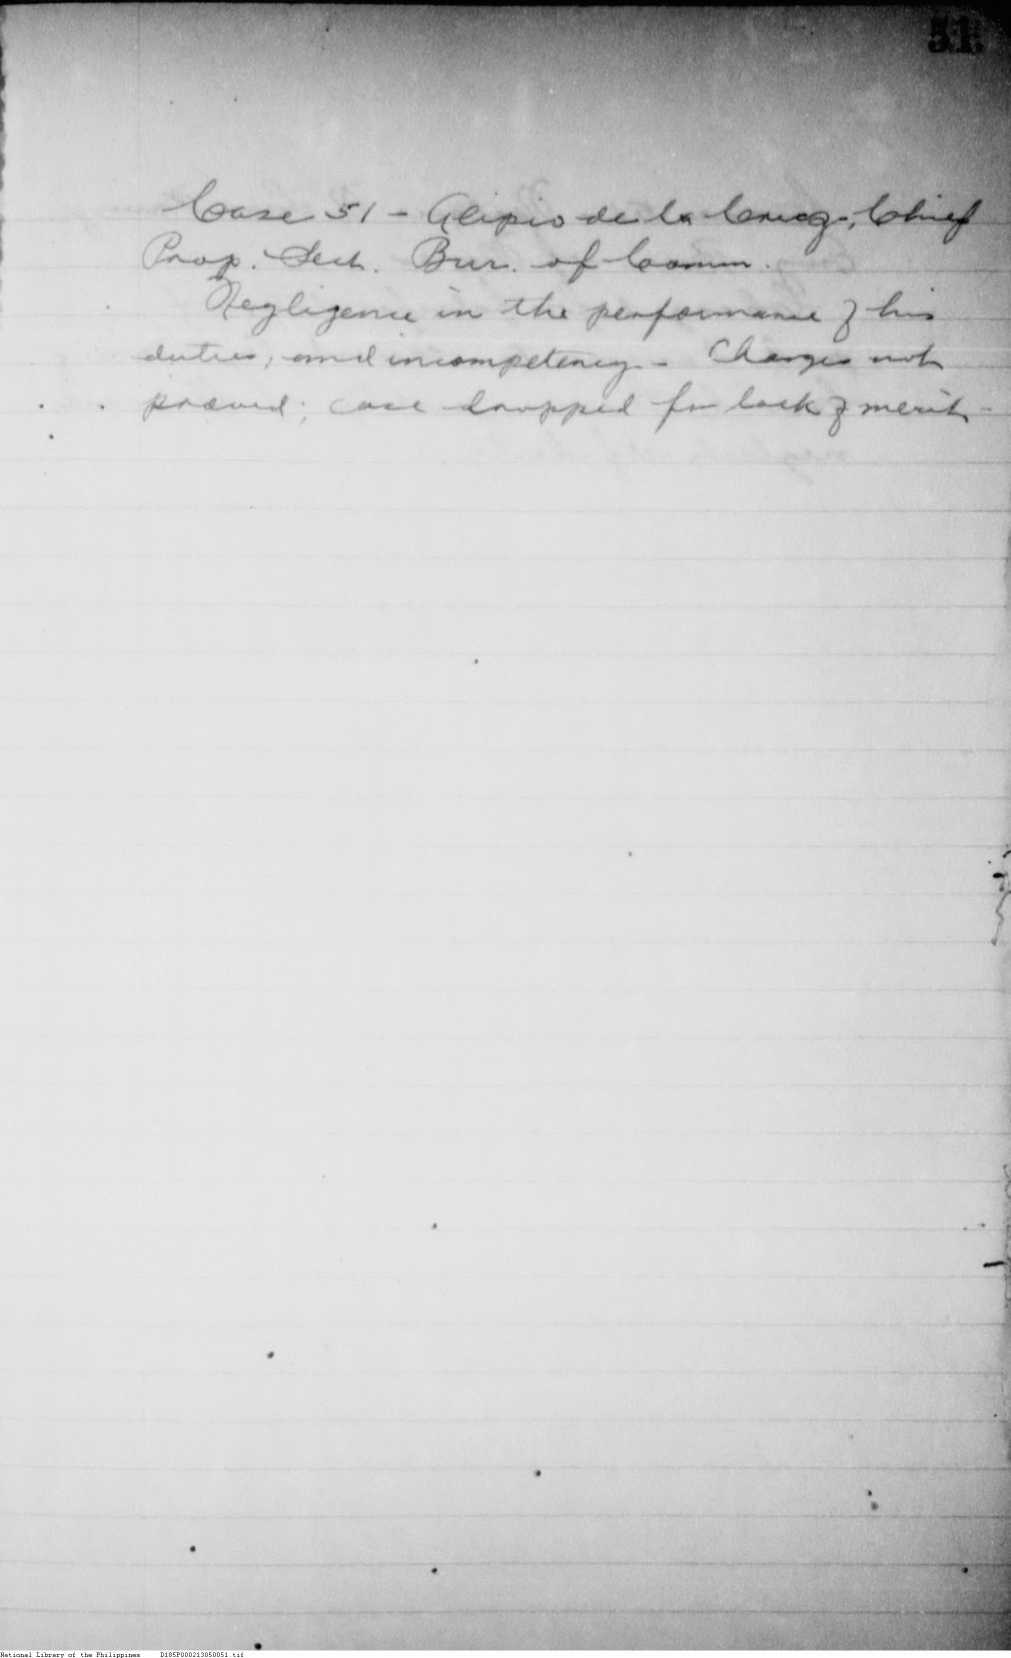 51
Case 51 - Alipio de la Cruz, Chief
Prop. Sect. Bur. of Comm.
Negligence in the performance of his
duties, and incompetency - Charges not
proved; case dropped for lack of merit -
National Library of the Philippines D185P000213050051.tif